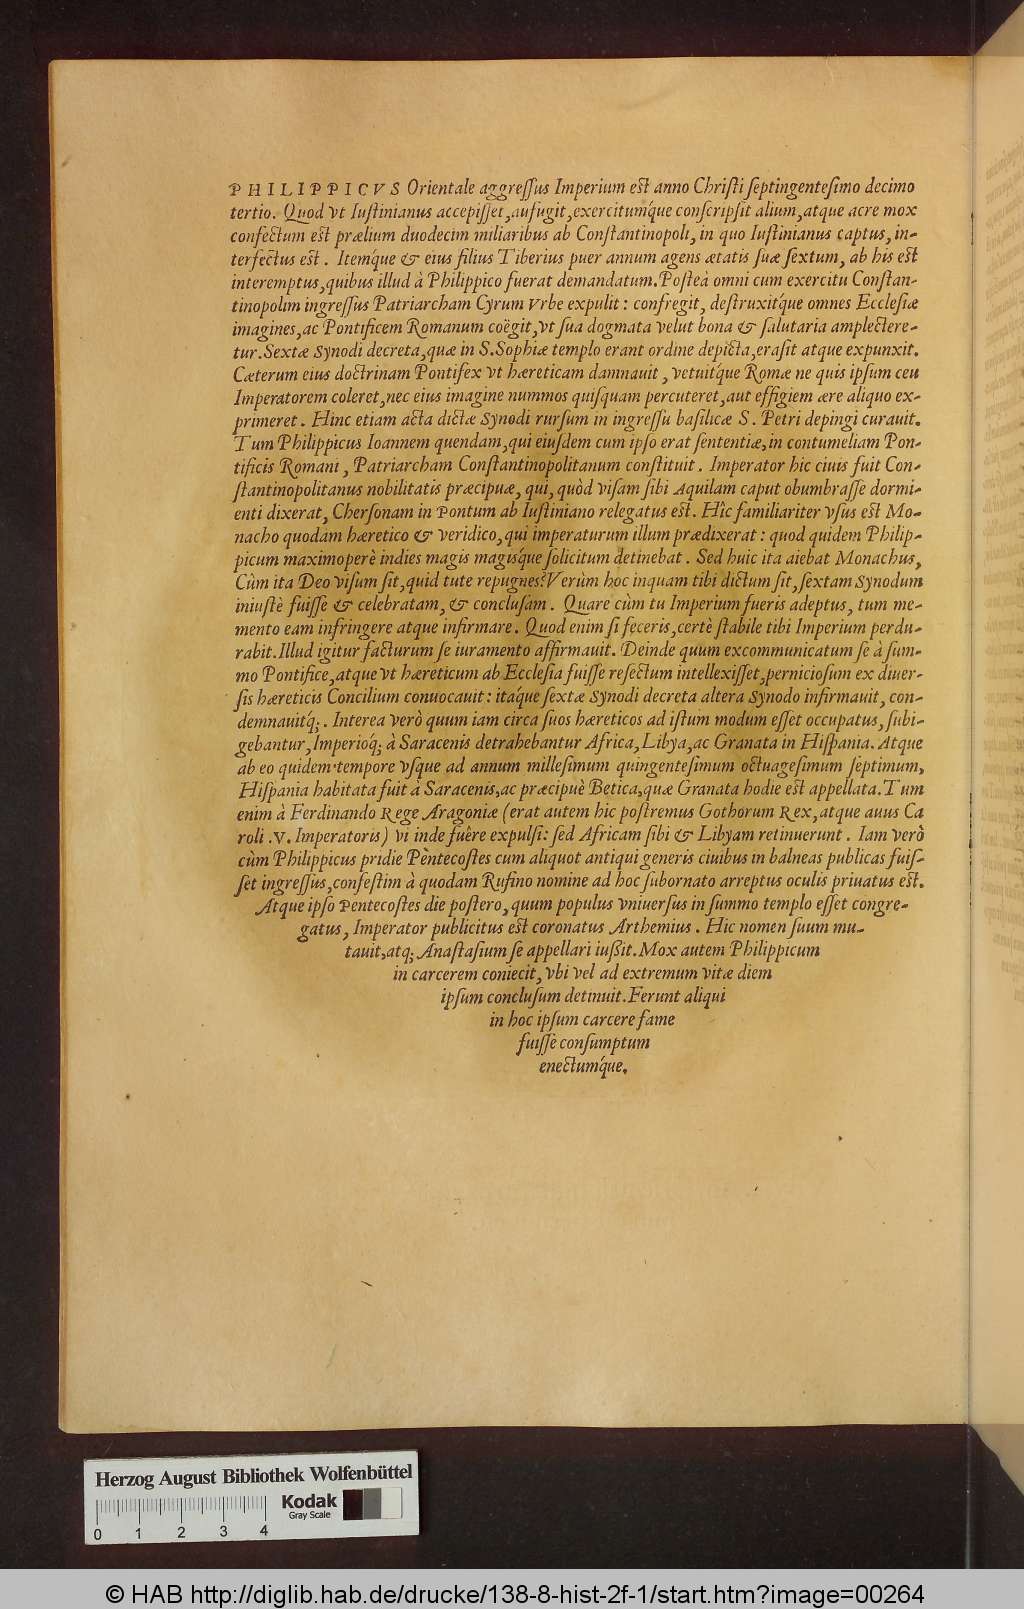 PHILIPPICVS Orientale aggreſſus Imperium est anno Chriſti ſeptingenteſimo decimo
tertio. Quod vt Iuſtinianus accepiſſet, aufugit, exercitumq́ue conſcripſit alium, atque acre mox
confectum est prælium duodecim miliaribus ab Conſtantinopoli, in quo Iuſtinianus captus, in-
terfectus est. Itemq́ue & eius filius Tiberius puer annum agens ætatis ſuæ ſextum, ab his est
interemptus, quibus illud à Philippico fuerat demandatum. Poſteà omni cum exercitu Conſtan-
tinopolim ingreſſus Patriarcham Cyrum Vrbe expulit: confregit, deſtruxitq́ue omnes Eccleſiæ
imagines, ac Pontificem Romanum coëgit, vt ſua dogmata velut bona & ſalutaria amplectere-
tur. Sextæ Synodi decreta, quæ in S. Sophiæ templo erant ordine depicta, eraſit atque expunxit.
Cæterum eius doctrinam Pontifex vt hæreticam damnauit, vetuitq́ue Romæ ne quis ipſum ceu
Imperatorem coleret, nec eius imagine nummos quiſquam percuteret, aut effigiem ære aliquo ex-
primeret. Hinc etiam acta dictæ Synodi rurſum in ingreſſu baſilicæ S. Petri depingi curauit.
Tum Philippicus Ioannem quendam, qui eiuſdem cum ipſo erat ſententiæ, in contumeliam Pon-
tificis Romani, Patriarcham Conſtantinopolitanum conſtituit. Imperator hic ciuis fuit Con-
ſtantinopolitanus nobilitatis præcipuæ, qui, quòd viſam ſibi Aquilam caput obumbraſſe dormi-
enti dixerat, Cherſonam in Pontum ab Iuſtiniano relegatus est. Hîc familiariter vſus est Mo-
nacho quodam hæretico & veridico, qui imperaturum illum prædixerat: quod quidem Philip-
picum maximoperè indies magis magisq́ue ſolicitum detinebat. Sed huic ita aiebat Monachus,
Cùm ita Deo viſum ſit, quid tute repugnes? Verùm hoc inquam tibi dictum ſit, ſextam Synodum
iniuſtè fuiſſe & celebratam, & concluſam. Quare cùm tu Imperium fueris adeptus, tum me-
mento eam infringere atque infirmare. Quod enim ſi feceris, certè ſtabile tibi Imperium perdu-
rabit. Illud igitur facturum ſe iuramento affirmauit. Deinde quum excommunicatum ſe à ſum-
mo Pontifice, atque vt hæreticum ab Eccleſia fuiſſe reſectum intellexiſſet, pernicioſum ex diuer-
ſis hæreticis Concilium conuocauit: itaq́ue ſextæ Synodi decreta altera Synodo infirmauit, con-
demnauitq́;. Interea verò quum iam circa ſuos hæreticos ad iſtum modum eſſet occupatus, ſubi-
gebantur, Imperioq́; à Saracenis detrahebantur Africa, Libya, ac Granata in Hiſpania. Atque
ab eo quidem tempore vſque ad annum milleſimum quingenteſimum octuageſimum ſeptimum,
Hiſpania habitata fuit à Saracenis, ac præcipuè Betica, quæ Granata hodie est appellata. Tum
enim à Ferdinando Rege Aragoniæ (erat autem hic poſtremus Gothorum Rex, atque auus Ca
roli .V. Imperatoris) vi inde fuêre expulſi: ſed Africam ſibi & Libyam retinuerunt. Iam verò
cùm Philippicus pridie Pèntecoſtes cum aliquot antiqui generis ciuibus in balneas publicas fuiſ-
ſet ingreſſus, confeſtim à quodam Rufino nomine ad hoc ſubornato arreptus oculis priuatus est.
Atque ipſo Pentecoſtes die poſtero, quum populus vniuerſus in ſummo templo eſſet congre-
gatus, Imperator publicitus est coronatus Arthemius. Hic nomen ſuum mu-
tauit, atq; Anaſtaſium ſe appellari iußit. Mox autem Philippicum
in carcerem coniecit, vbi vel ad extremum vitæ diem
ipſum concluſum detinuit. Ferunt aliqui
in hoc ipſum carcere fame
fuiſſe conſumptum
enectumq́ue.
Herzog August Bibliothek Wolfenbüttel
Kodak
Gray Scale
0 1 2 3 4
© HAB http://diglib.hab.de/drucke/138-8-hist-2f-1/start.htm?image=00264